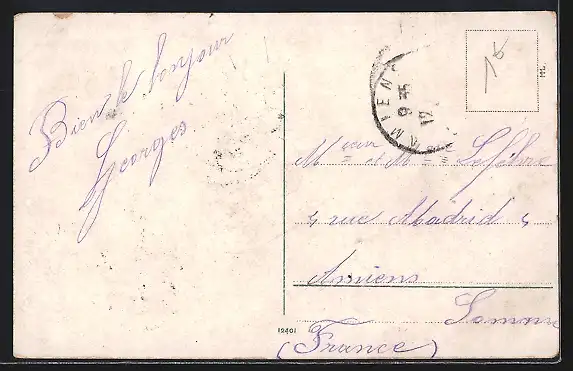 Bien le bonjour
Georges
AMIENS
9 35
12
15
ML.
Mr et Mme Lefebvre
4 rue Madrid 4
Amiens
Somme
(France)
12401